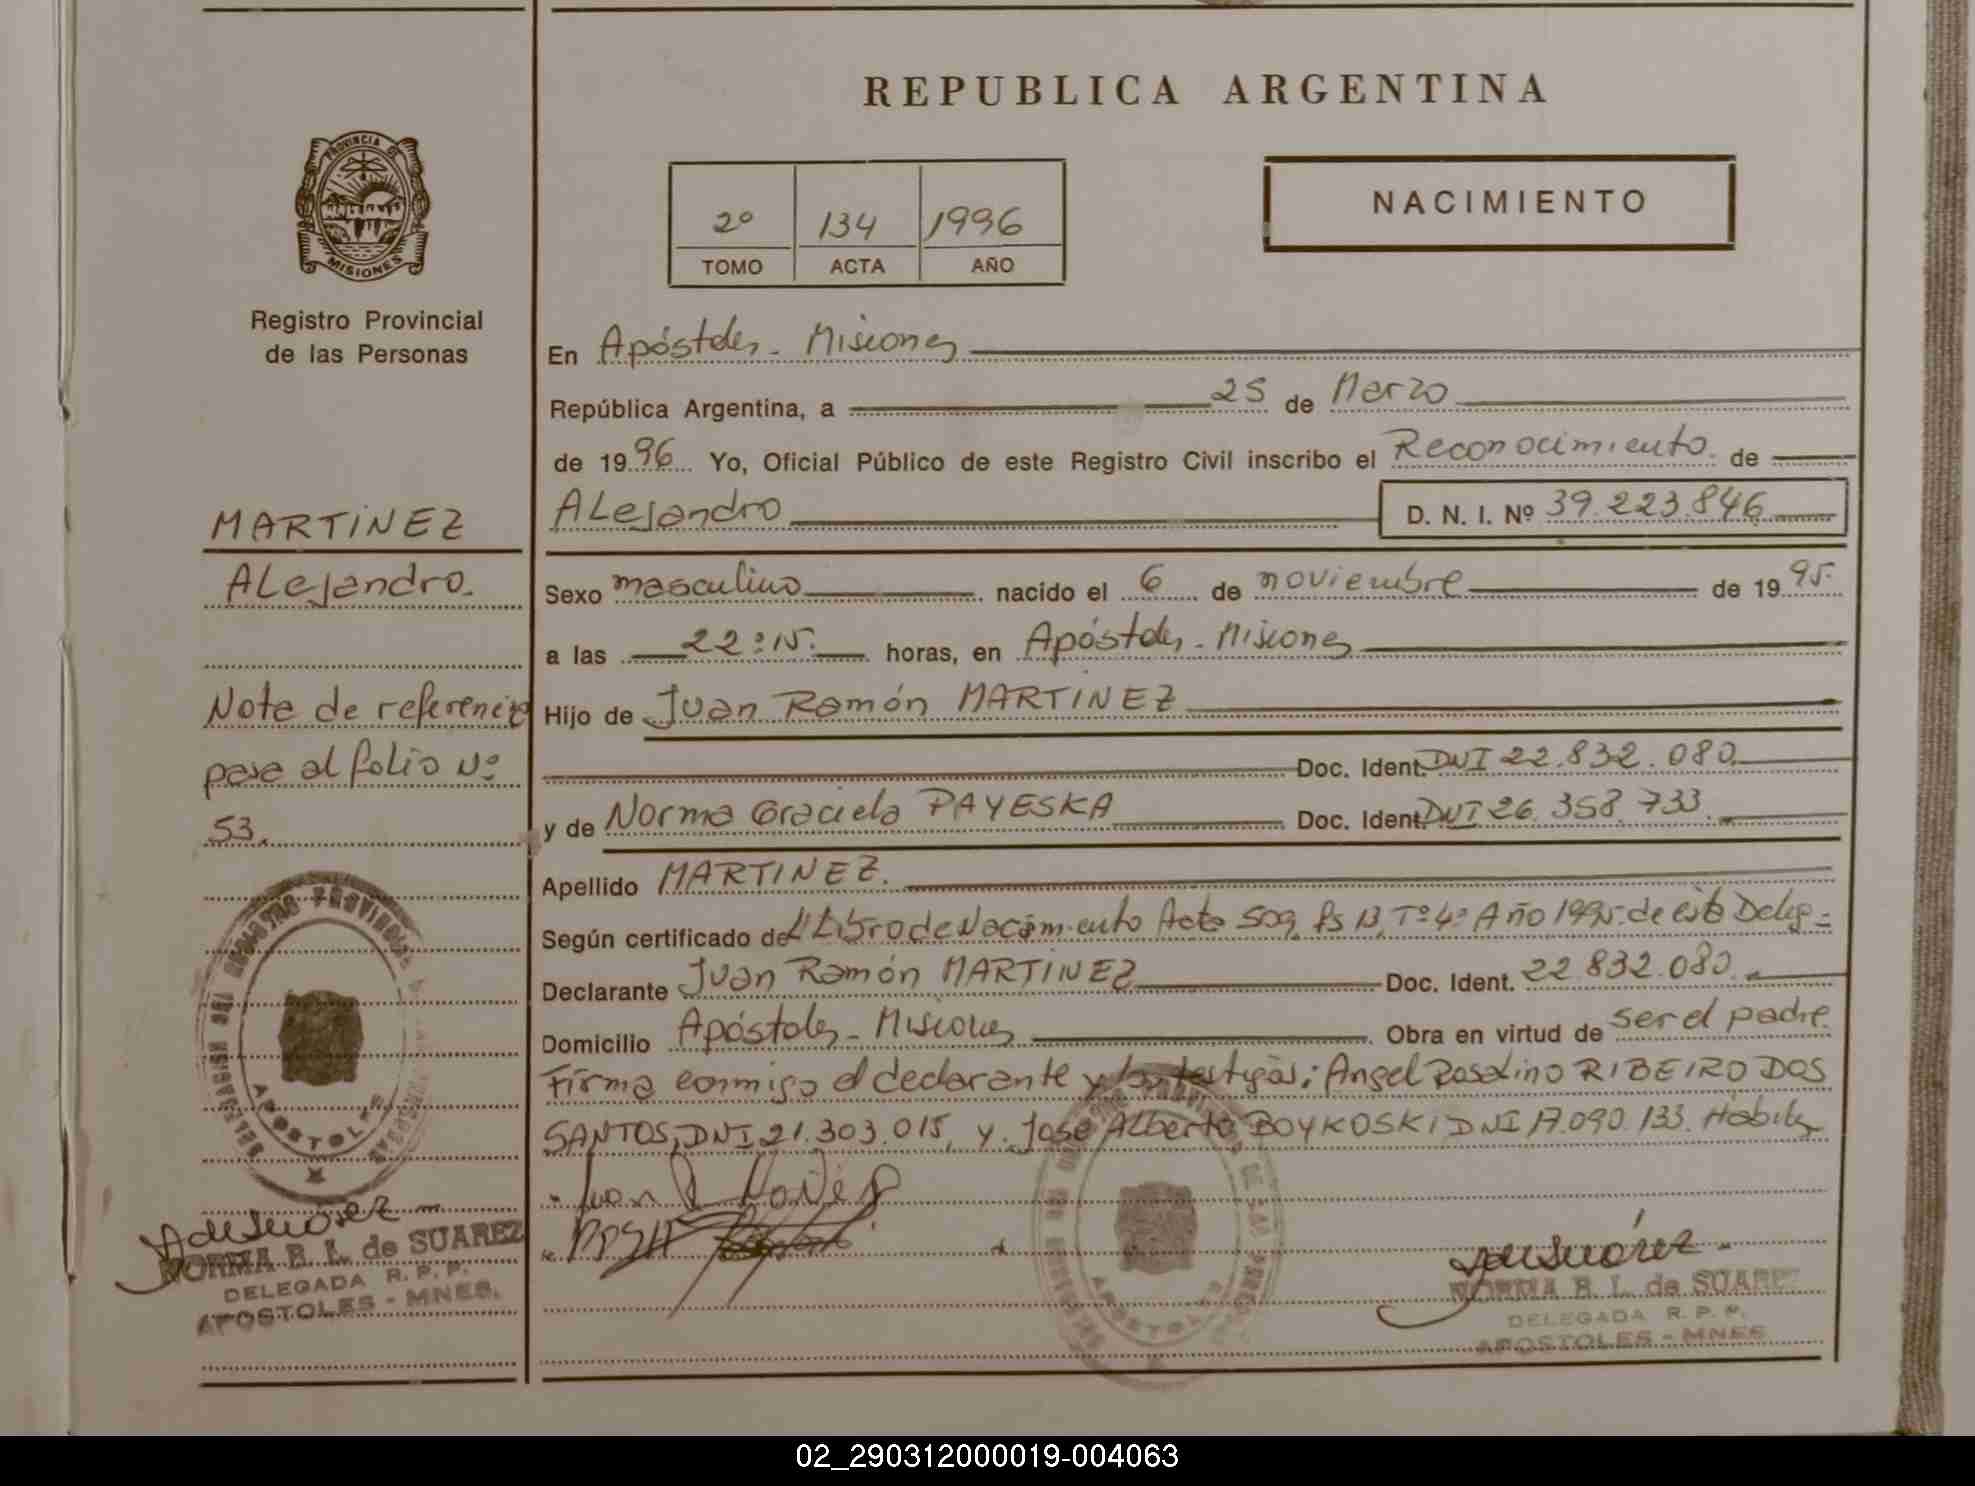 REPUBLICA ARGENTINA
NACIMIENTO
2º 134 1996
TOMO ACTA AÑO
PROVINCIA DE
MISIONES
Registro Provincial
de las Personas
MARTINEZ
Alejandro.
Nota de referencia
pasa al folio Nº
53.
REGISTRO PROVINCIAL DE LAS PERSONAS
APOSTOLES
NORMA B. L. de SUAREZ
DELEGADA R. P. P.
APOSTOLES - MNES.
En Apóstoles - Misiones
República Argentina, a 25 de Marzo
de 1996 Yo, Oficial Público de este Registro Civil inscribo el Reconocimiento de
Alejandro D. N. I. Nº 39.223.846
Sexo masculino nacido el 6 de noviembre de 1995.
a las 22:15. horas, en Apóstoles - Misiones
Hijo de Juan Ramón MARTINEZ
Doc. Ident. DNI 22.832.080
y de Norma Graciela PAYESKA Doc. Ident. DNI 26.358.733.
Apellido MARTINEZ.
Según certificado del Libro de Nacimiento Acta 509, fs 13, Tº 4º Año 1995 de esta Deleg=
Declarante Juan Ramón MARTINEZ Doc. Ident. 22.832.080.
Domicilio Apóstoles - Misiones Obra en virtud de ser el padre.
Firma conmigo el declarante y los testigos: Angel Rosalino RIBEIRO DOS
SANTOS, DNI 21.303.015, y José Alberto BOYKOSKI DNI 17.090.133. Hábiles
APOSTOLES
NORMA B. L. de SUAREZ
DELEGADA R. P. P.
APOSTOLES - MNES
02_290312000019-004063